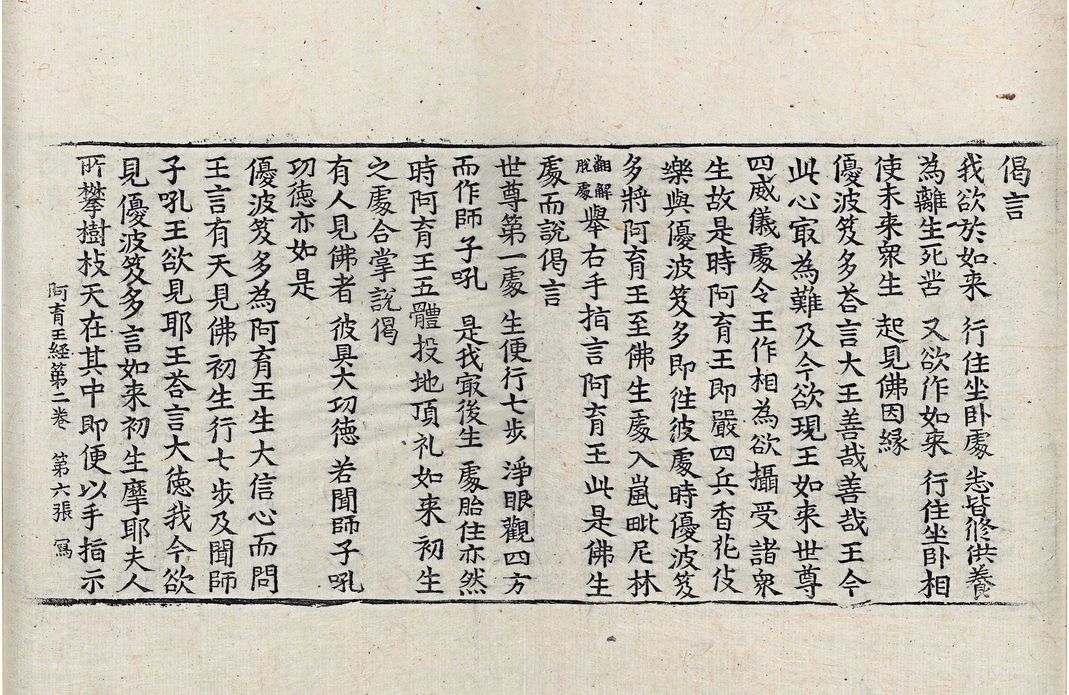 偈言
我欲於如来 行住坐卧處 悉皆修供養
為離生死苦 又欲作如来 行住坐卧相
使未来衆生 起見佛因縁
優波笈多荅言大王善哉善哉王今
此心㝡為難及今欲現王如来世尊
四威儀處令王作相為欲攝受諸衆
生故是時阿育王即嚴四兵香花伎
樂與優波笈多即徃彼處時優波笈
多將阿育王至佛生處入嵐毗尼林
翻解脫處舉右手指言阿育王此是佛生
處而說偈言
世尊第一處 生便行七步 淨眼觀四方
而作師子吼 是我㝡後生 處胎住亦然
時阿育王五體投地頂礼如来初生
之處合掌說偈
有人見佛者 彼具大功徳 若聞師子吼
功徳亦如是
優波笈多為阿育王生大信心而問
王言有天見佛初生行七步及聞師
子吼王欲見耶王荅言大徳我今欲
見優波笈多言如来初生摩耶夫人
所攀樹枝天在其中即便以手指示
阿育王経第二卷 第六張 寫